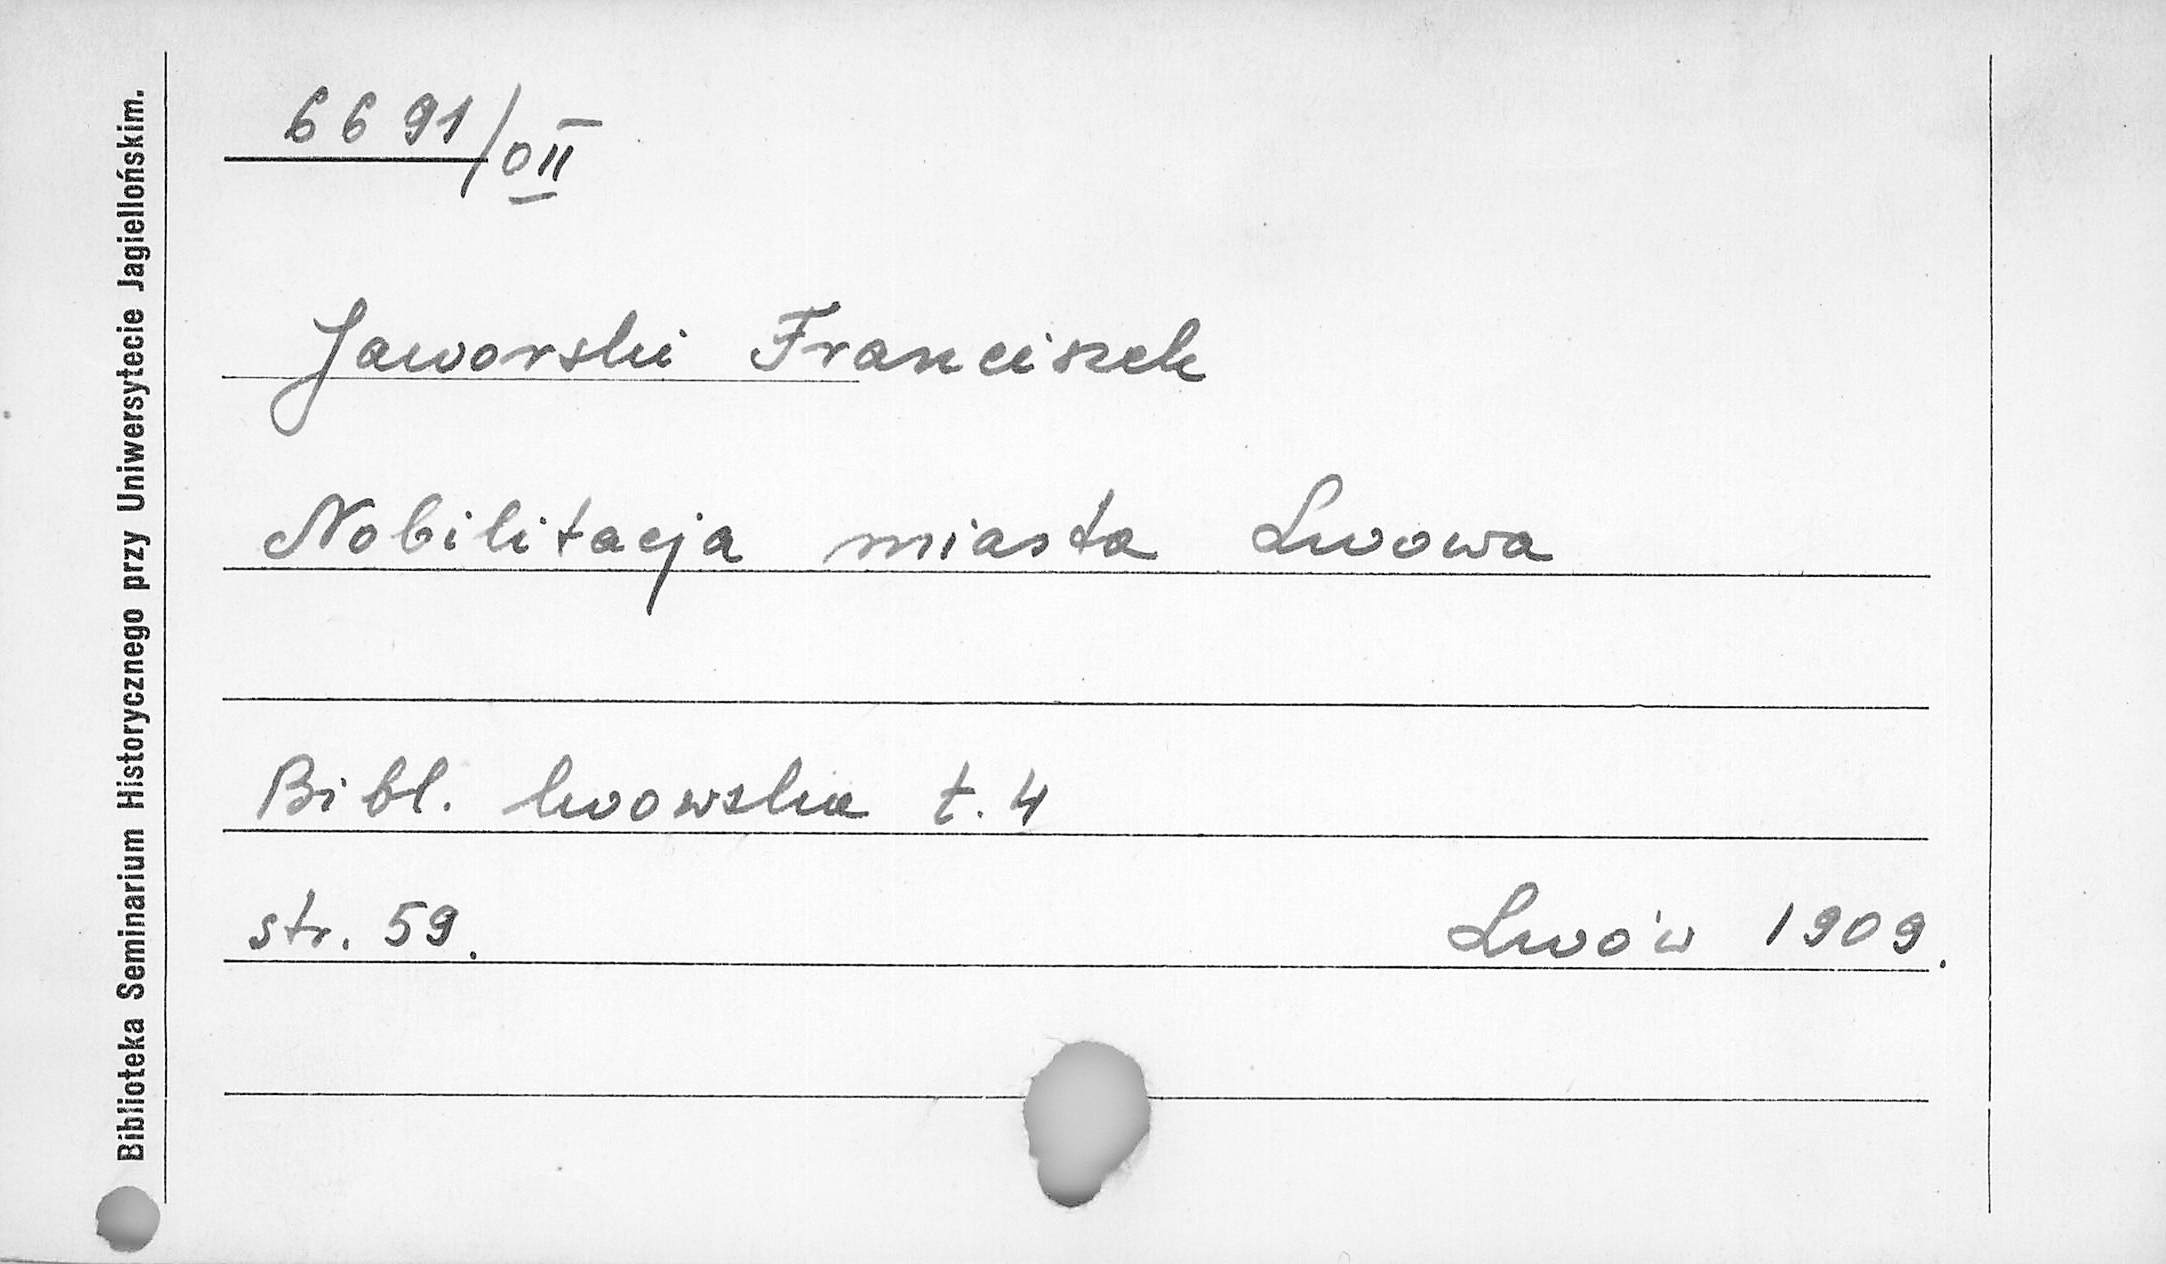 Biblioteka Seminarium Historycznego przy Uniwersytecie Jagiellońskim.
6691/0II
Jaworski Franciszek
Nobilitacja miasta Lwowa
Bibl. lwowska t. 4
str. 59.
Lwów 1909.